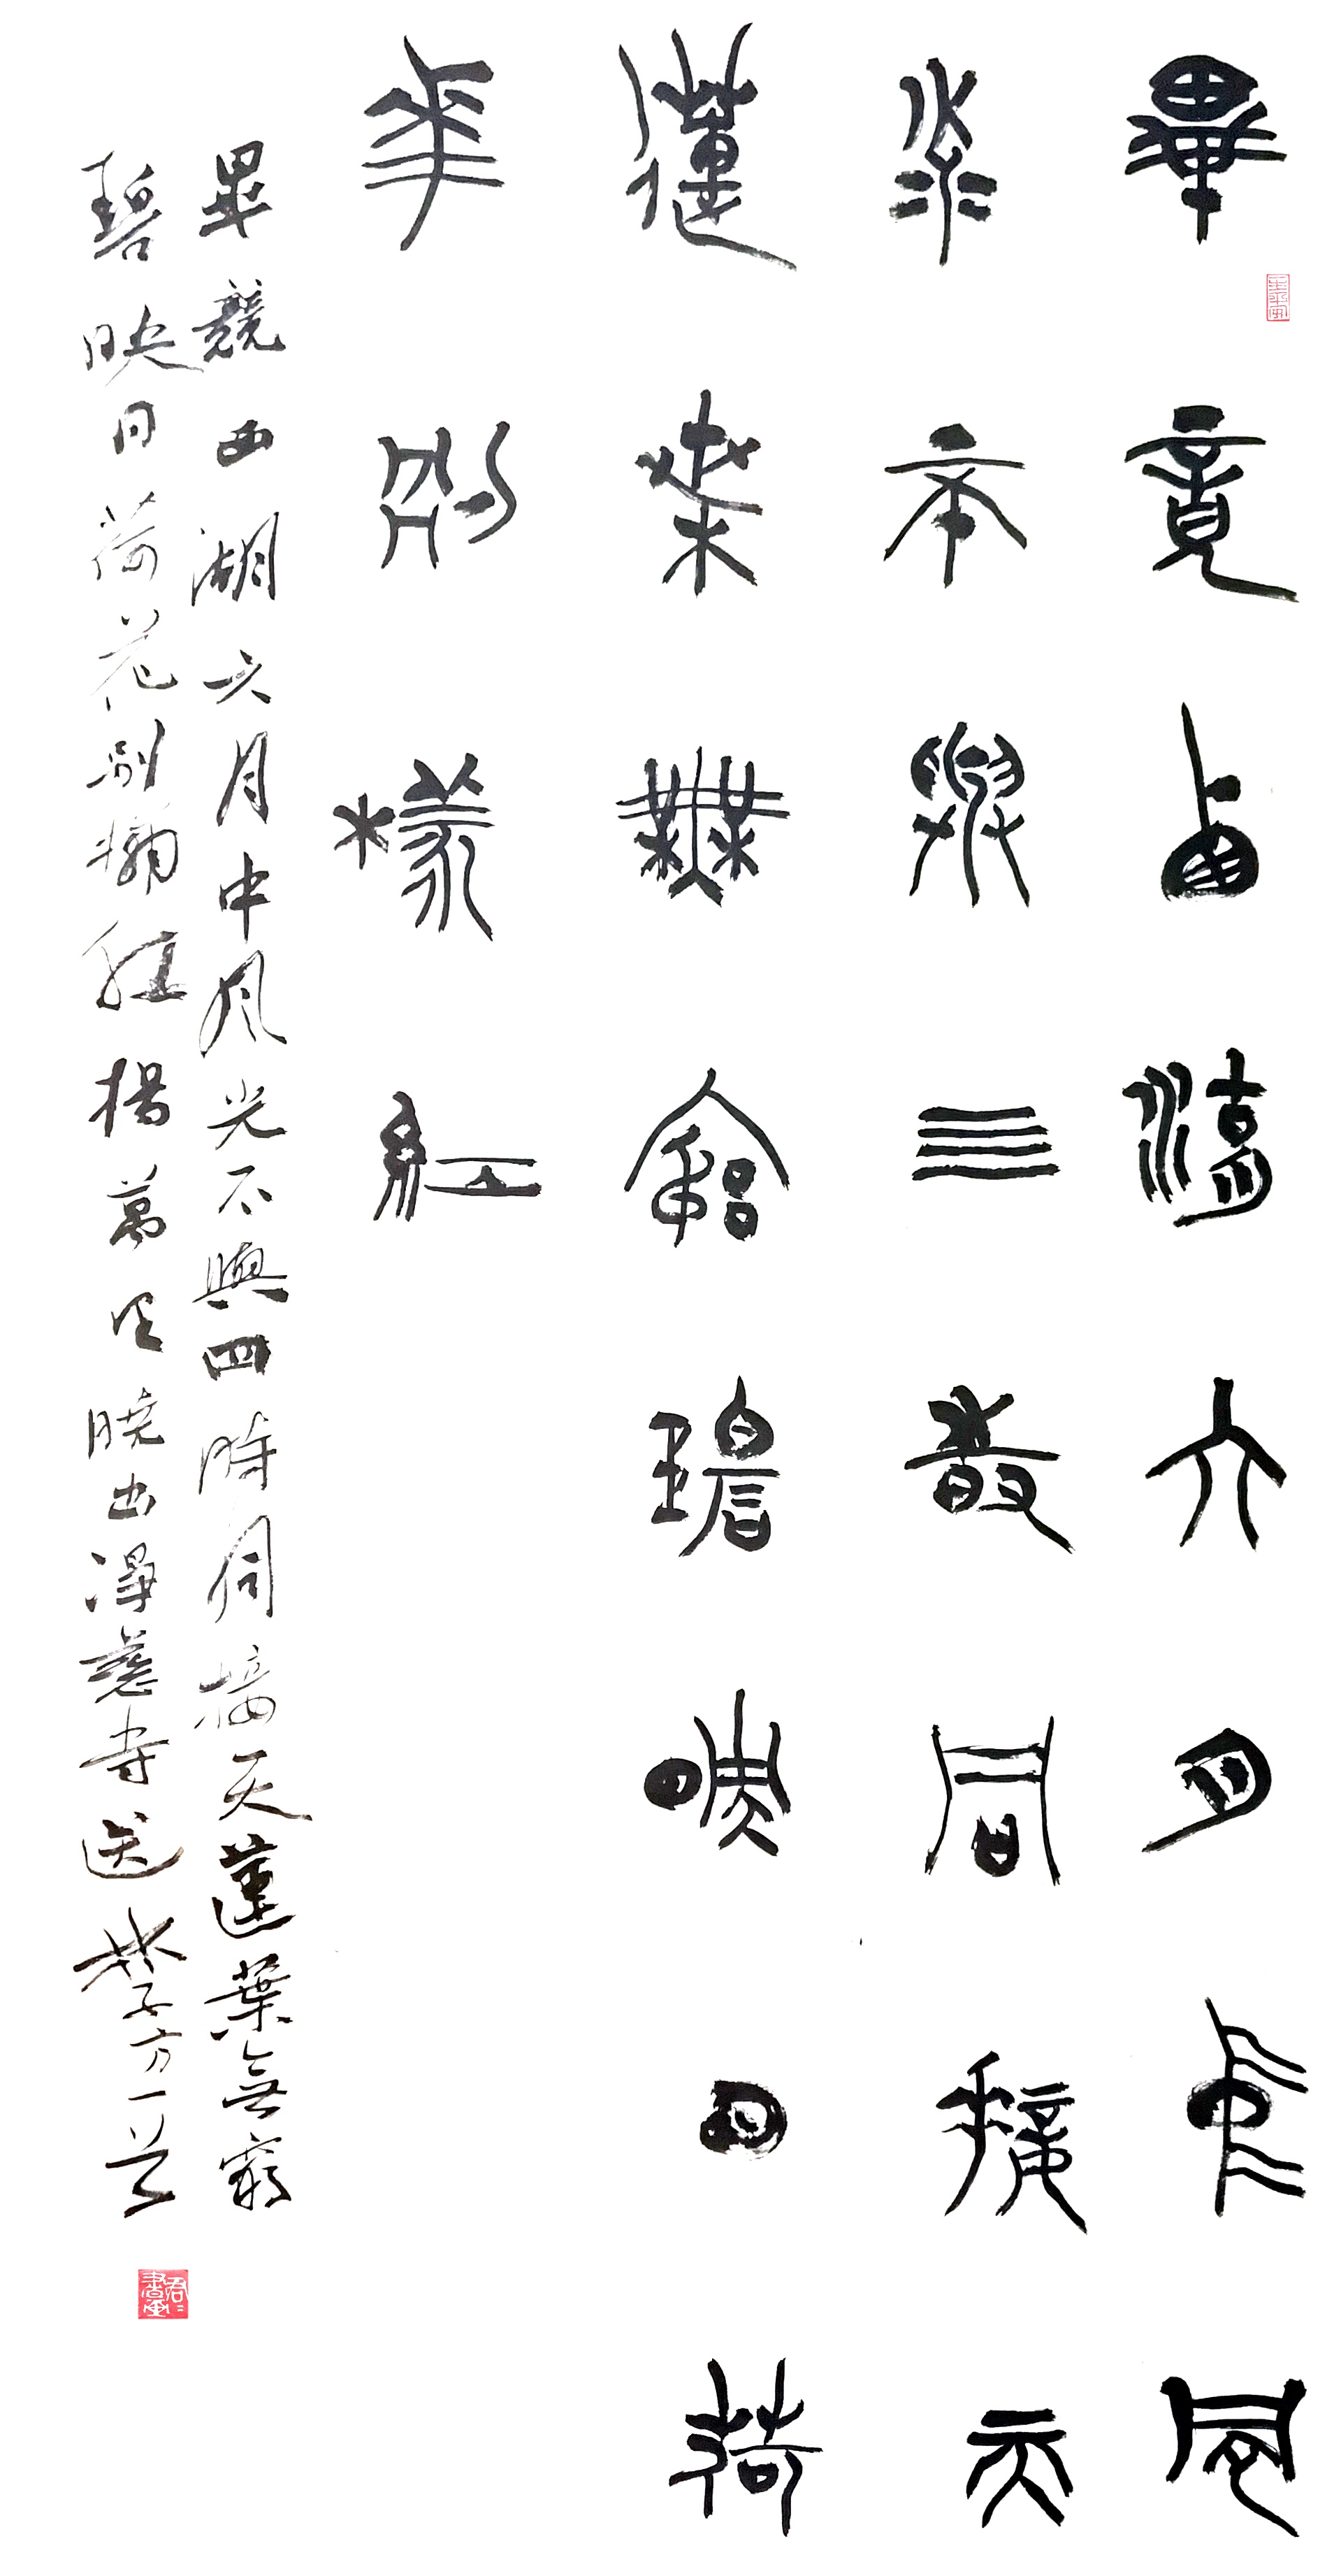 畢竟西湖六月中風
光不與四時同接天
蓮葉無窮碧映日荷
華別樣紅
畢競西湖六月中風光不與四時同接天蓮葉無窮
碧映日荷花別樣紅楊萬里曉出淨慈寺送林子方一首